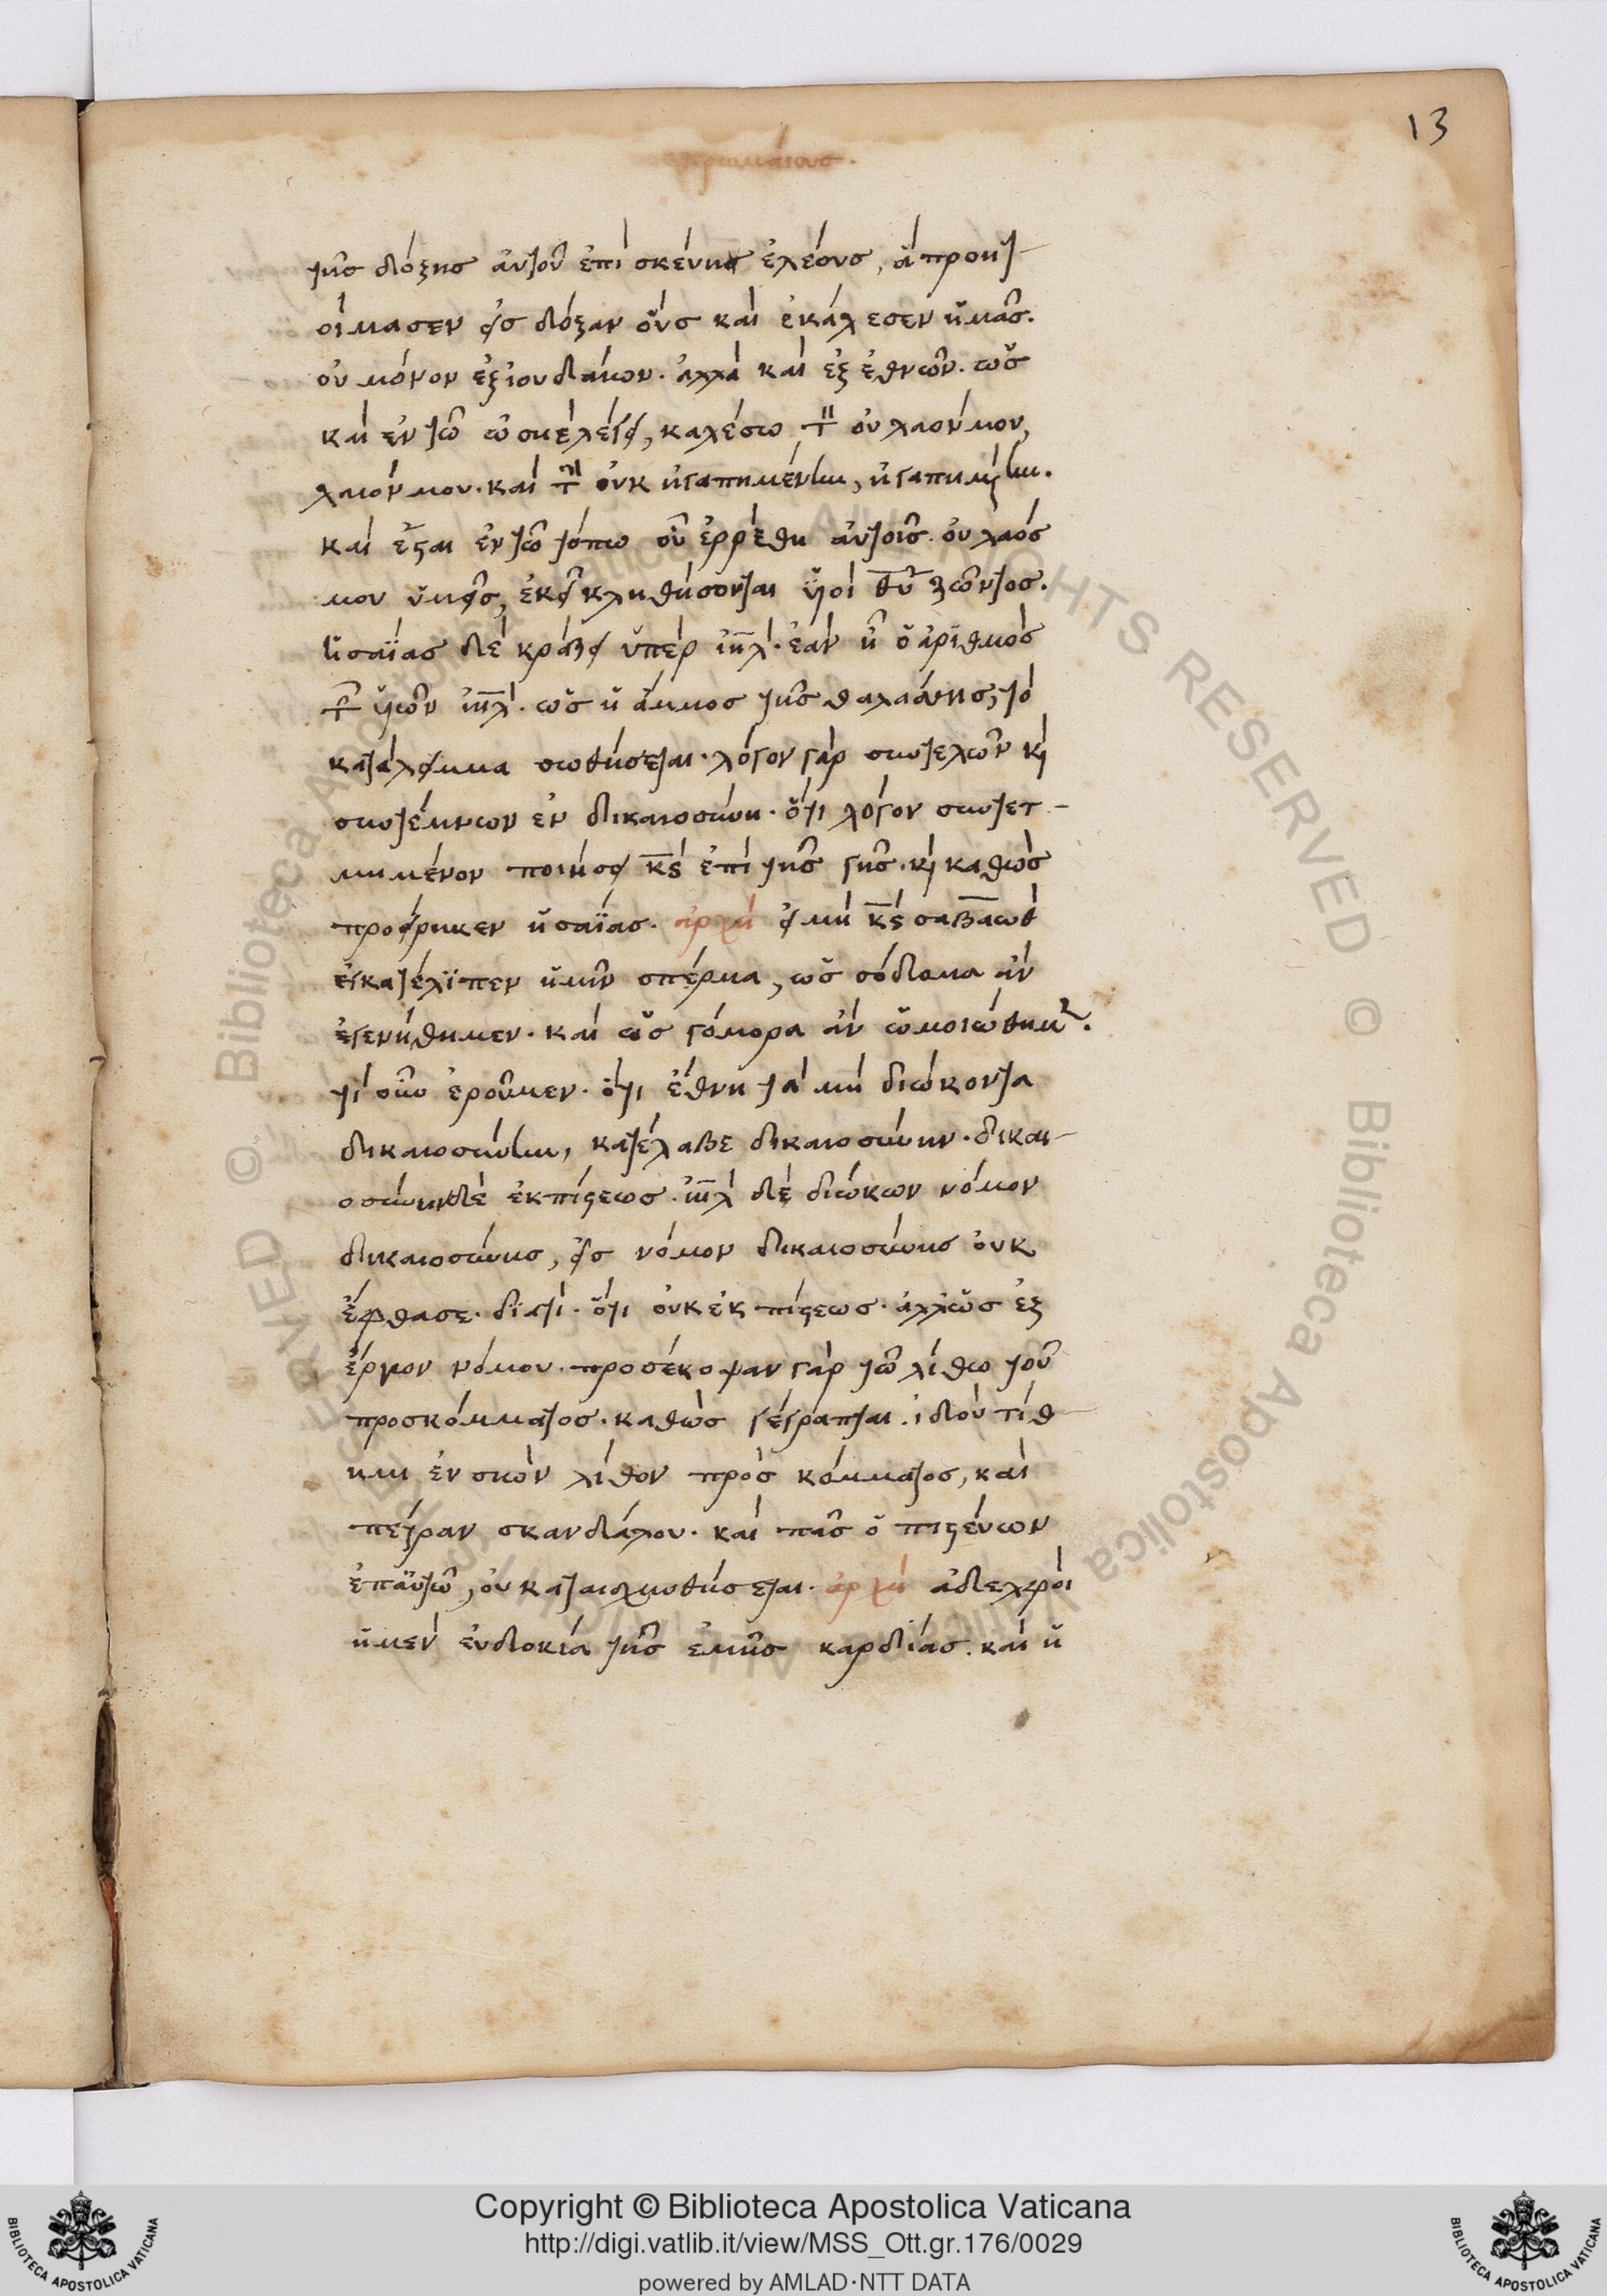 13
ρωμαίους.
τῆς δόξης αὐτοῦ ἐπὶ σκεύη ἐλέους, ἃ προητ-
οίμασεν εἰς δόξαν οὓς καὶ ἐκάλεσεν ἡμᾶς.
οὐ μόνον ἐξ ἰουδαίων. ἀλλὰ καὶ ἐξ ἐθνῶν. ὡς
καὶ ἐν τῷ ὠσηὲ λέγει, καλέσω τὸν οὐ λαόν μου,
λαόν μου. καὶ τὴν οὐκ ἠγαπημένην, ἠγαπημένην.
καὶ ἔσται ἐν τῷ τόπω οὗ ἐρρέθη αὐτοῖς. οὐ λαός
μου ὑμεῖς, ἐκεῖ κληθήσονται υἱοὶ θῦ ζῶντος.
ἡσαΐας δὲ κράζει ὑπὲρ ιηλ. ἐὰν ἦ ὁ ἀριθμὸς
τῶν υἱῶν ιηλ. ὡς ἡ ἄμμος τῆς θαλάσσης, τὸ
κατάλειμμα σωθήσεται. λόγον γὰρ συντελῶν κὶ
συντέμνων ἐν δικαιοσύνη. ὅτι λόγον συντετ-
μημένον ποιήσει κς ἐπὶ τῆς γῆς. κὶ καθὼς
προείρηκεν ἡσαΐας. ἀρχὴ εἰ μὴ κς σαβαὼθ
ἐγκατέλιπεν ἡμῖν σπέρμα, ὡς σόδομα ἂν
ἐγενήθημεν. καὶ ὡς γόμορα ἂν ὡμοιώθημεν.
τί οὖν ἐροῦμεν. ὅτι ἔθνη τὰ μὴ διώκοντα
δικαιοσύνην, κατέλαβε δικαιοσύνην. δικαι-
οσύνην δὲ ἐκ πίστεως. ιηλ δὲ διώκων νόμον
δικαιοσύνης, εἰς νόμον δικαιοσύνης οὐκ
ἔφθασε. διατί. ὅτι οὐκ ἐκ πίστεως. ἀλλ' ὡς ἐξ
ἔργον νόμου. προσέκοψαν γὰρ τῷ λίθω τοῦ
προσκόμματος. καθὼς γέγραπται. ἰδοὺ τίθ-
ημι ἐν σιὼν λίθον πρὸς κόμματος, καὶ
πέτραν σκανδάλου. καὶ πᾶς ὁ πιστεύων
ἐπ' αὐτῶ, οὐ καταισχυνθήσεται. ἀρχὴ ἀδελφοὶ
ἡ μὲν εὐδοκία τῆς ἐμῆς καρδίας. καὶ ἡ
Copyright © Biblioteca Apostolica Vaticana
http://digi.vatlib.it/view/MSS_Ott.gr.176/0029
powered by AMLAD·NTT DATA
BIBLIOTECA APOSTOLICA VATICANA
BIBLIOTECA APOSTOLICA VATICANA